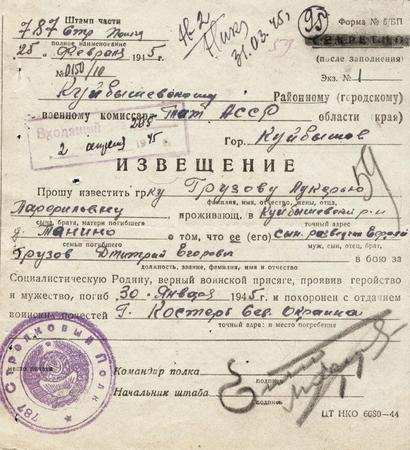 Штамп части
787 Стр. полк
полное наименование
25 февраля 1945 г.
№ 0150/10
№ 2
31.03.45г.
95
59
Форма № 5/БП
СЕКРЕТНО
(после заполнения)
Экз. № 1
Куйбышевскому Районному (городскому)
военному комиссару Тат АССР области (края)
Гор. Куйбышев
Входящий
285
2 апреля 1945
ИЗВЕЩЕНИЕ
59
Прошу известить гр-ку Грузову Лукерью
фамилия, имя, отчество, жены, отца,
сына, брата, матери погибшего
проживающ. в Куйбышевский р-н
точный адрес
д. Танино о том, что ее (его) сын
семьи погибшего
муж, сын, отец, брат,
Грузов Дмитрий Егорович в бою за
должность, звание, фамилия, имя и отчество
Социалистическую Родину, верный воинской присяге, проявив геройство
и мужество, погиб 30 января 1945 г. и похоронен с отданием
воинских почестей г. Костерь Сев. Окраина
точный адрес: и место погребения
место печати
787 Стрелковый Полк
Командир полка
подпись
Начальник штаба
подпись
ЦТ НКО 6680-44